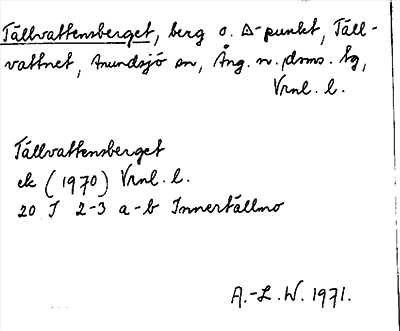 Tällvattensberget, berg o. △-punkt, Täll-
vattnet, Anundsjö sn, Ång. n. doms. tg,
Vrnl. l.
Tällvattensberget
ek (1970) Vrnl. l.
20 I 2-3 a-b Innertällmo
A.-L. W. 1971.